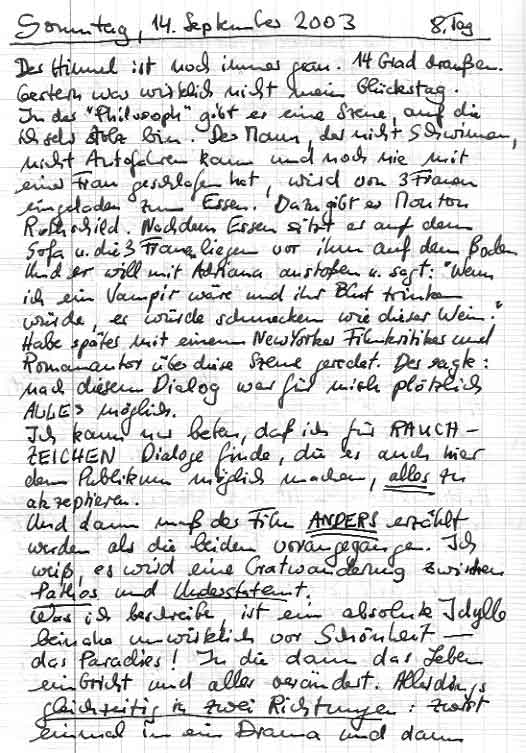 Sonntag, 14. September 2003 8. Tag
Der Himmel ist noch immer grau. 14 Grad draußen.
Gestern war wirklich nicht mein Glückstag.
In der "Philosoph" gibt es eine Szene, auf die
ich sehr stolz bin. Der Mann, der nicht Schwimmen,
nicht Autofahren kann und noch nie mit
einer Frau geschlafen hat, wird von 3 Frauen
eingeladen zum Essen. Dazu gibt es Mouton
Rothschild. Nach dem Essen sitzt er auf dem
Sofa u. die 3 Frauen liegen vor ihm auf dem Boden
Und er will mit Adriana anstoßen u. sagt: "Wenn
ich ein Vampir wäre und ihr Blut trinken
würde, es würde schmecken wie dieser Wein."
Habe später mit einem New Yorker Filmkritiker und
Romanautor über diese Szene geredet. Der sagte:
nach diesem Dialog war für mich plötzlich
ALLES möglich.
Ich kann nur beten, daß ich für RAUCH-
ZEICHEN Dialoge finde, die es auch hier
dem Publikum möglich machen, alles zu
akzeptieren.
Und dann muß der Film ANDERS erzählt
werden als die beiden vorangegangen. Ich
weiß, es wird eine Gratwanderung zwischen
Pathos und Understatemt.
Was ich beschreibe, ist ein absolute Idylle
beinahe unwirklich vor Schönheit —
das Paradies! In die dann das Leben
einbricht und alles verändert. Allerdings
gleichzeitig in zwei Richtungen: zuerst
einmal in ein Drama und dann